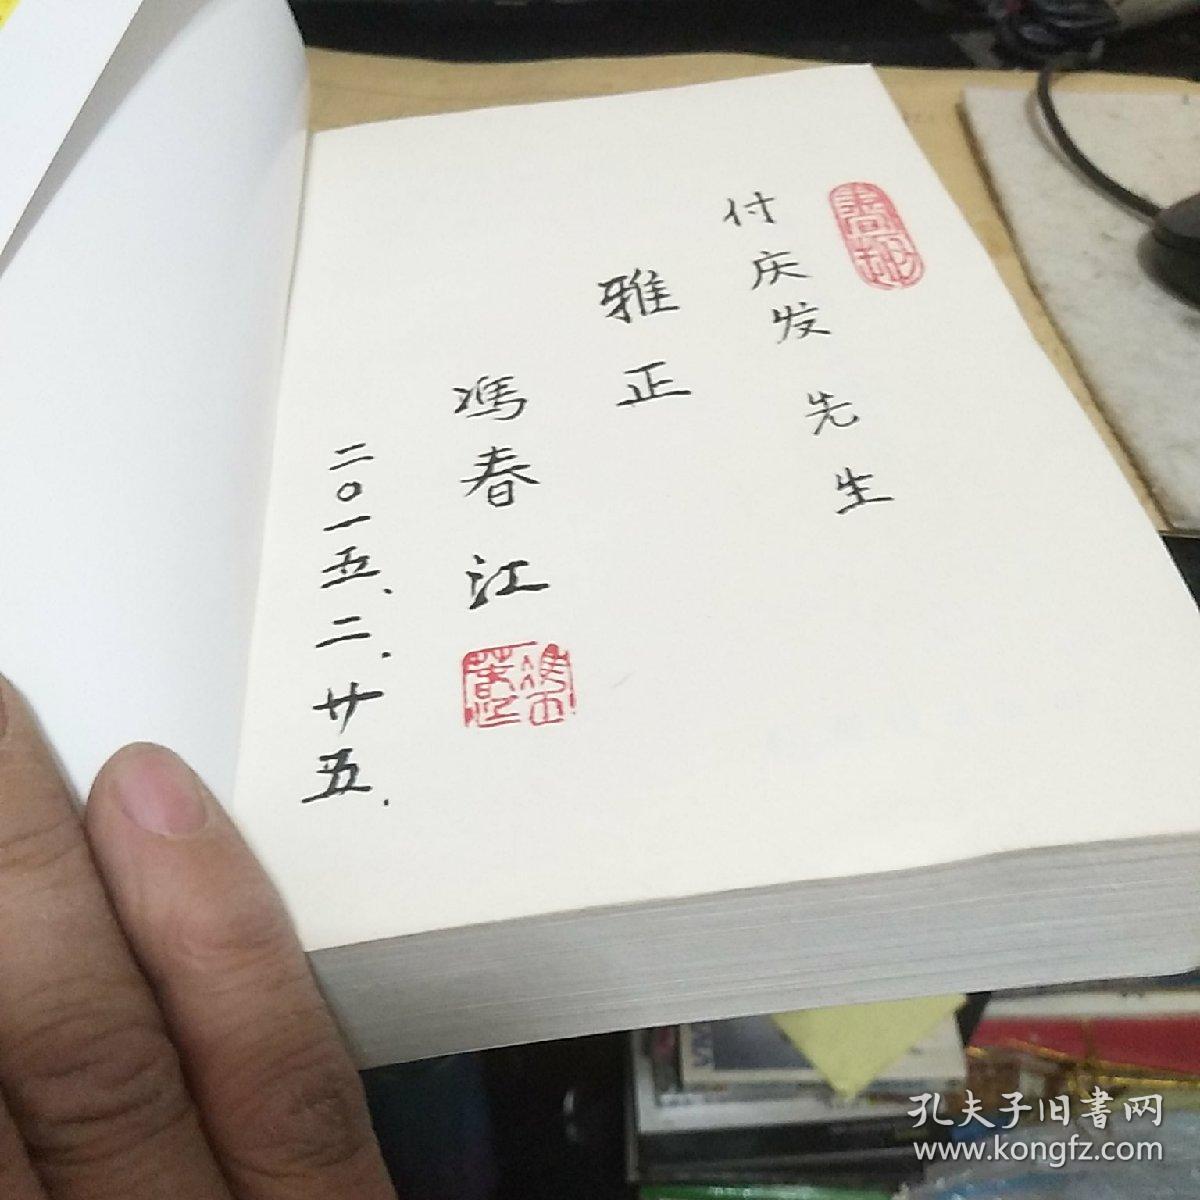 付庆发先生
雅正
冯春江
二〇一五、二、廿五.
孔夫子旧書网
www.kongfz.com